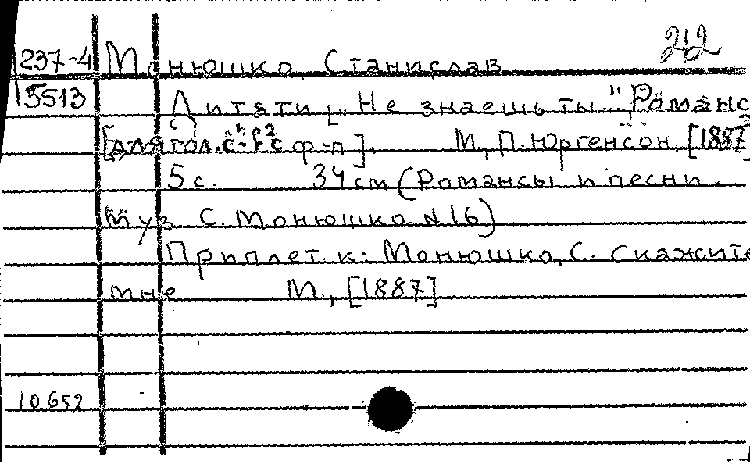 212
237-4 Монюшко, Станислав
15513 Дитяти „Не знаешь ты" Романс
[для гол. c¹-f² с ф-п]. М., П. Юргенсон, [1887
5 с. 34 см (Романсы и песни.
Муз С. Монюшко N 16)
Приплет к: Монюшко, С. Скажите
мне М., [1887]
10652